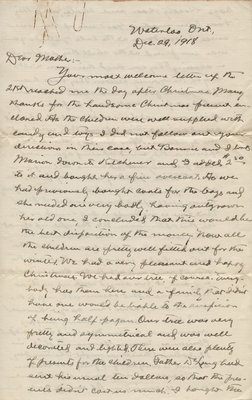 Waterloo Ont,
Dec. 29, 1918
Dear Mother:-
Your most welcome letter of the
21st reached me the day after Christmas. Many
thanks for the handsome Christmas present en
closed. As the children were well supplied with
candy and toys I did not follow out your
directions in their case, but Bonnie and I took
Marion down to Kitchener and I added $10
to it and bought her a fine overcoat. As we
had previously bought coats for the boys and
she needed one very badly, having outgrown
her old one, I concluded that this would be
the best disposition of the money. Now all
the children are pretty well fitted out for the
winter. We had a very pleasant and happy
Christmas. We had our tree of course. Every
body has them here and a family that didn't
have one would be liable to the suspicion
of being half pagan. Our tree was very
pretty and symmetrical and was well
decorated and lighted. There were also plenty
of presents for the children. Father D. Long had
sent his usual ten dollars, so that the pres
ents didn't cost us much. I bought the